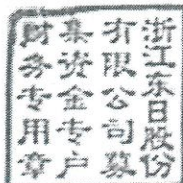 浙江东日股份
有限公司募
集资金专户
财务专用章